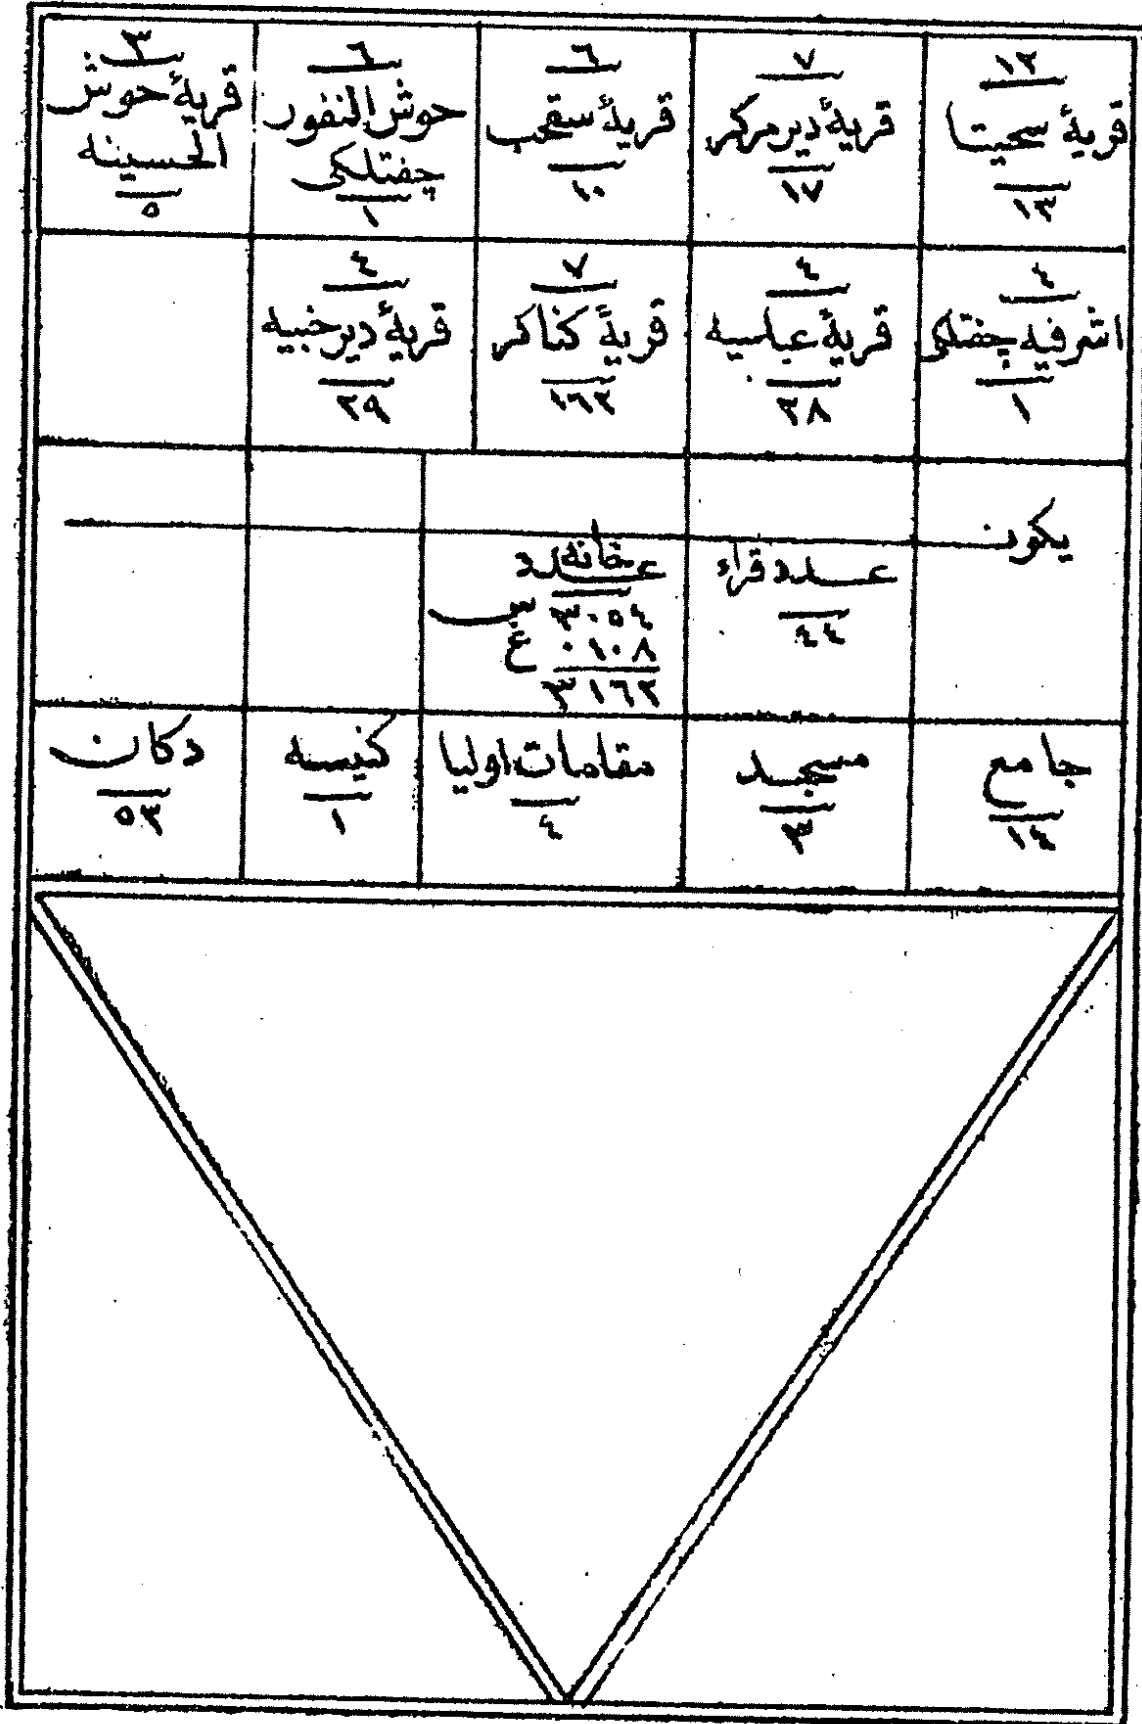 ١٢
قريۀ سحيتا
١٣
٧
قريۀ دير مركر
١٧
٦
قريۀ سقحب
١٠
٦
حوش النفور
چفتلكى
١
٣
قريۀ حوش
الحسينه
٥
٤
اشرفيه چفتلكى
١
٤
قريۀ عباسيه
٢٨
٧
قريۀ كناكر
١٦٢
٤
قريۀ دير خبيه
٢٩
يكون
عدد قراء
٤٤
عدد خانه
٣٠٥٤ س
٠١٠٨ غ
٣١٦٢
جامع
١٤
مسجد
٣
مقامات اوليا
٤
كنيسه
١
دكان
٥٣